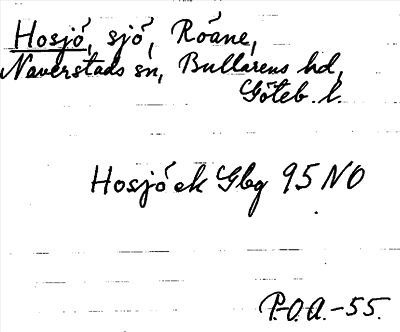 Hosjö, sjö, Röane,
Naverstads sn, Bullarens hd,
Göteb. l.
Hosjö ek Gbg 95 NO
P.O.A.-55.